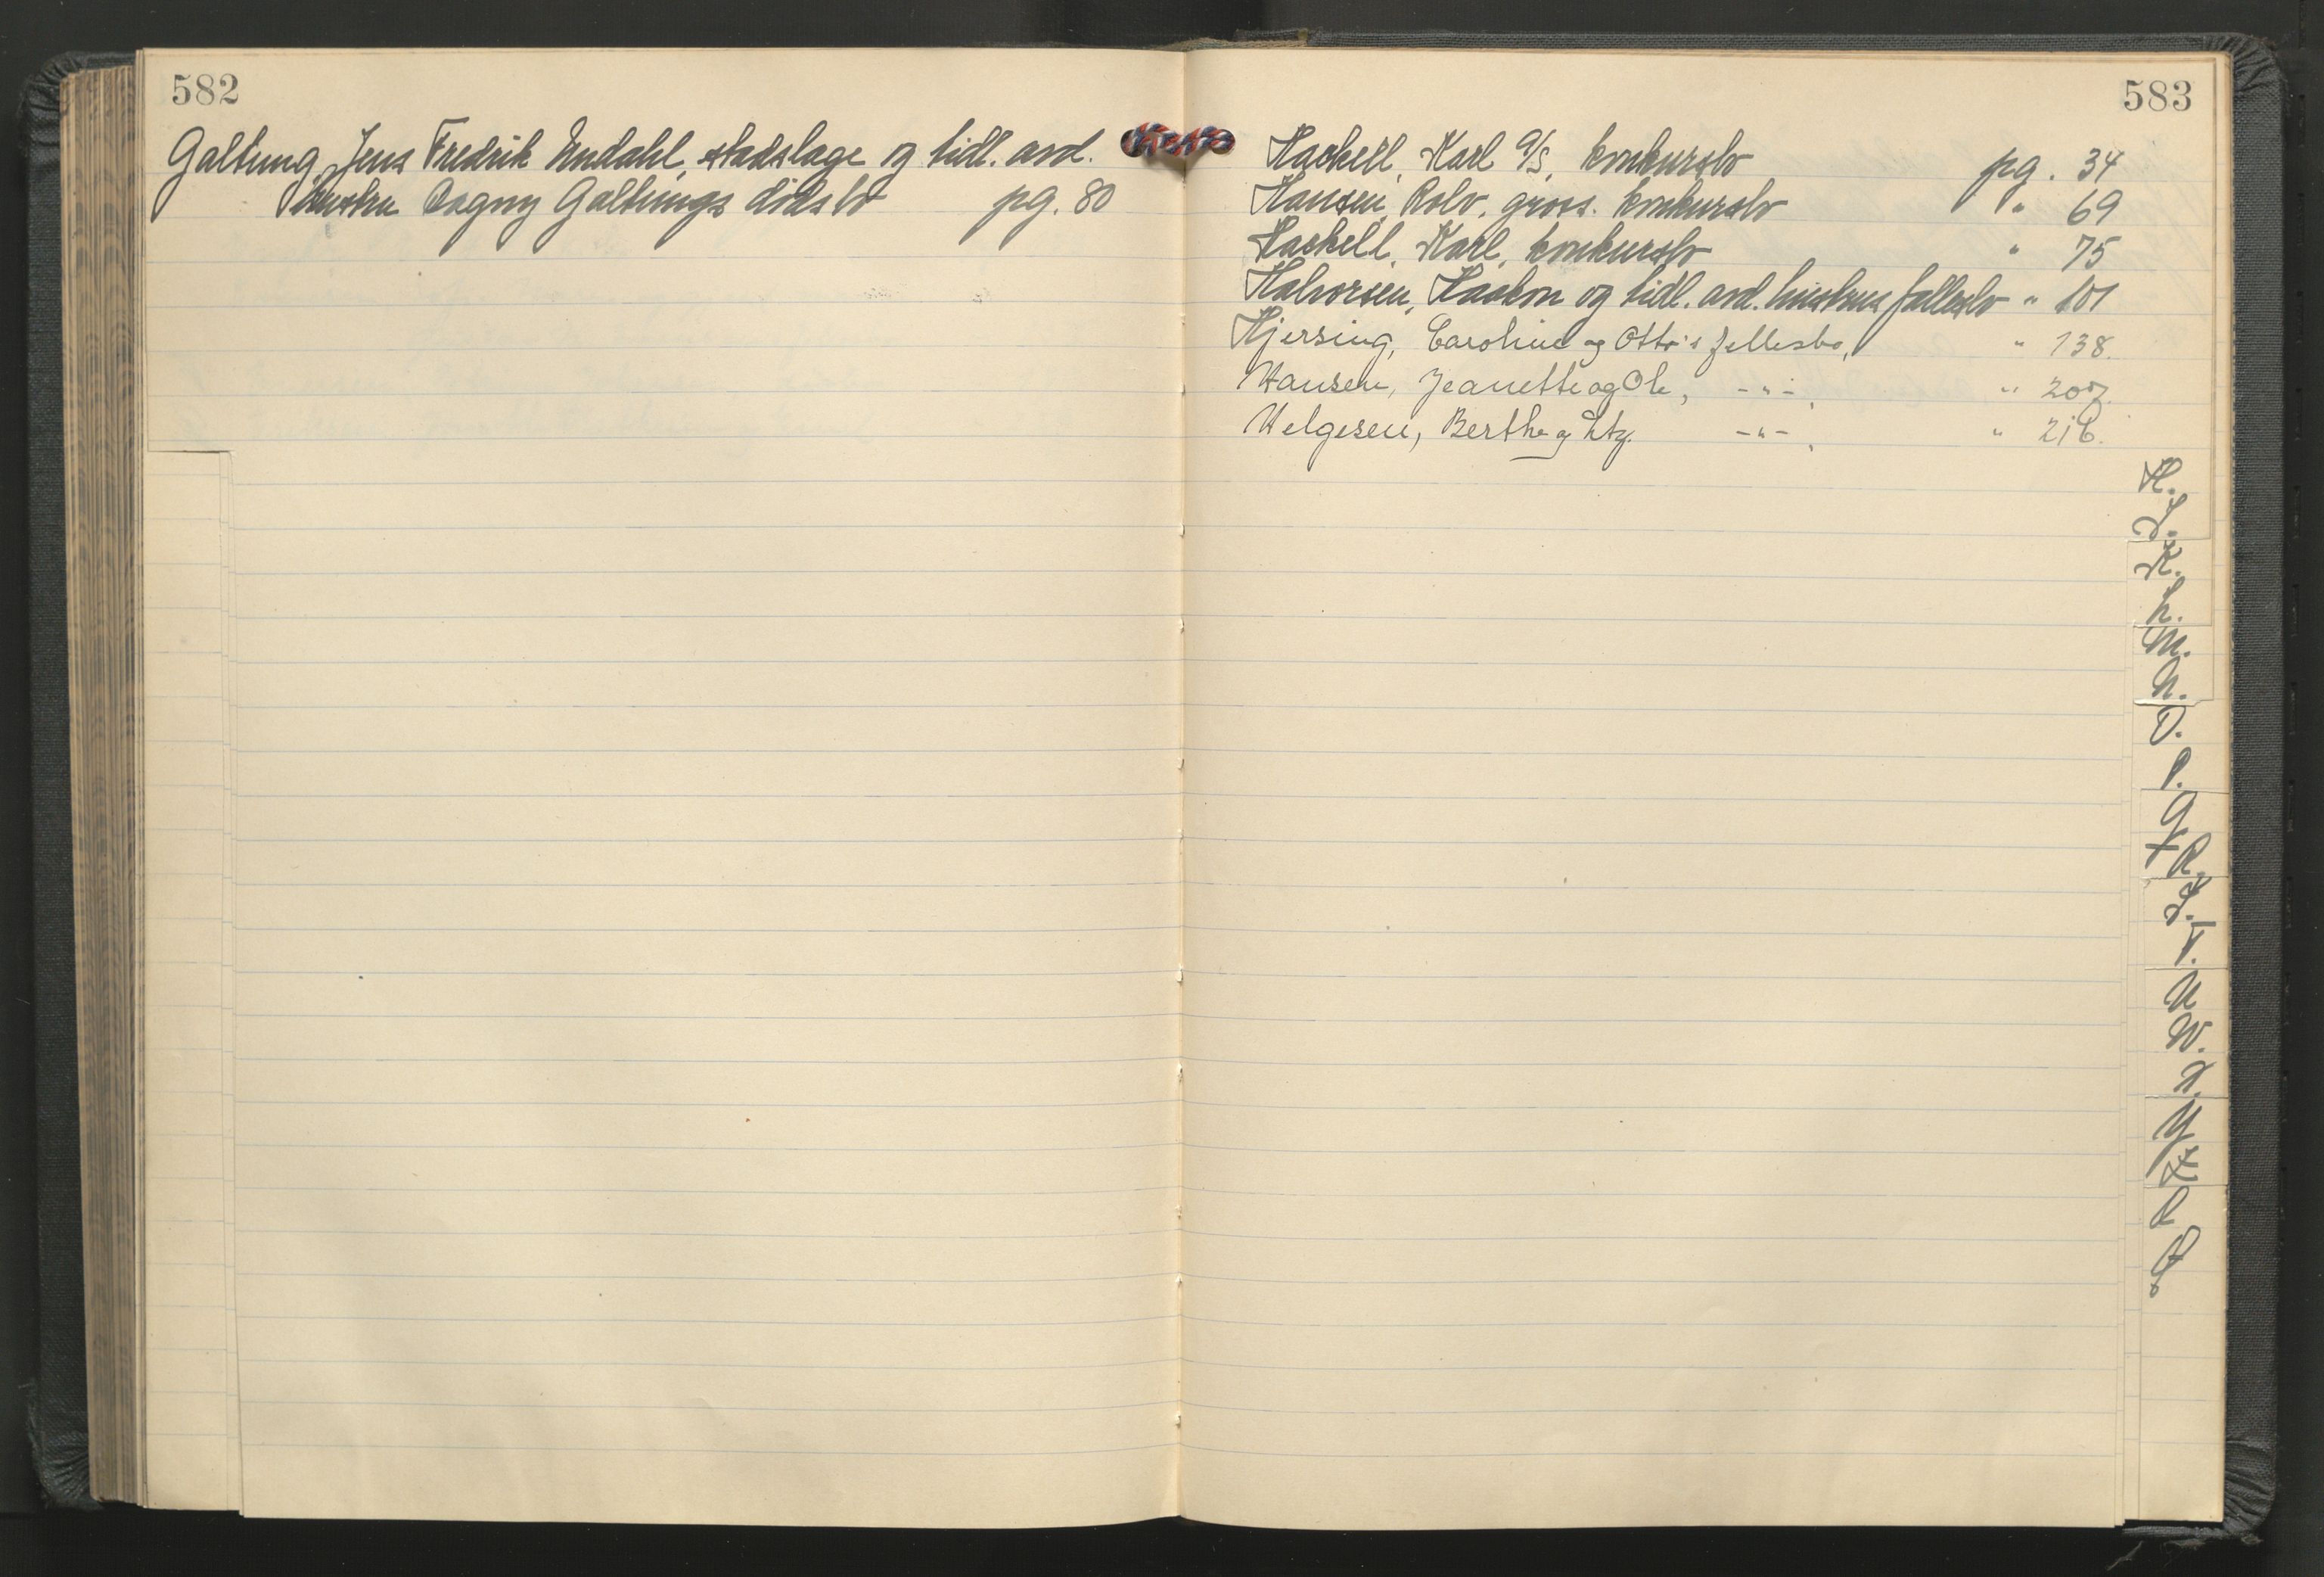 582
Galtung, Jens Fredrik Endahl, stadslæge og tidl. avd.
hustru Dagny Galtungs dødsbo pg. 80
583
Haskell, Karl A/S, konkursbo pg. 34
Hansen, Rolv, gross. konkursbo " 69
Haskell, Karl, konkursbo " 75
Halvorsen, Haakon og tidl. avd. hustrus fællesbo " 101
Hjersing, Caroline og Otto's fellesbo, " 138.
Hansen, Jeanette og Ole, -"-, " 207.
Helgesen, Berthe og -"-, " 216.
H.
I.
K.
L.
M.
N.
O.
P.
Q
R.
S.
T.
U
W.
X.
Y
Z
Æ
Ø